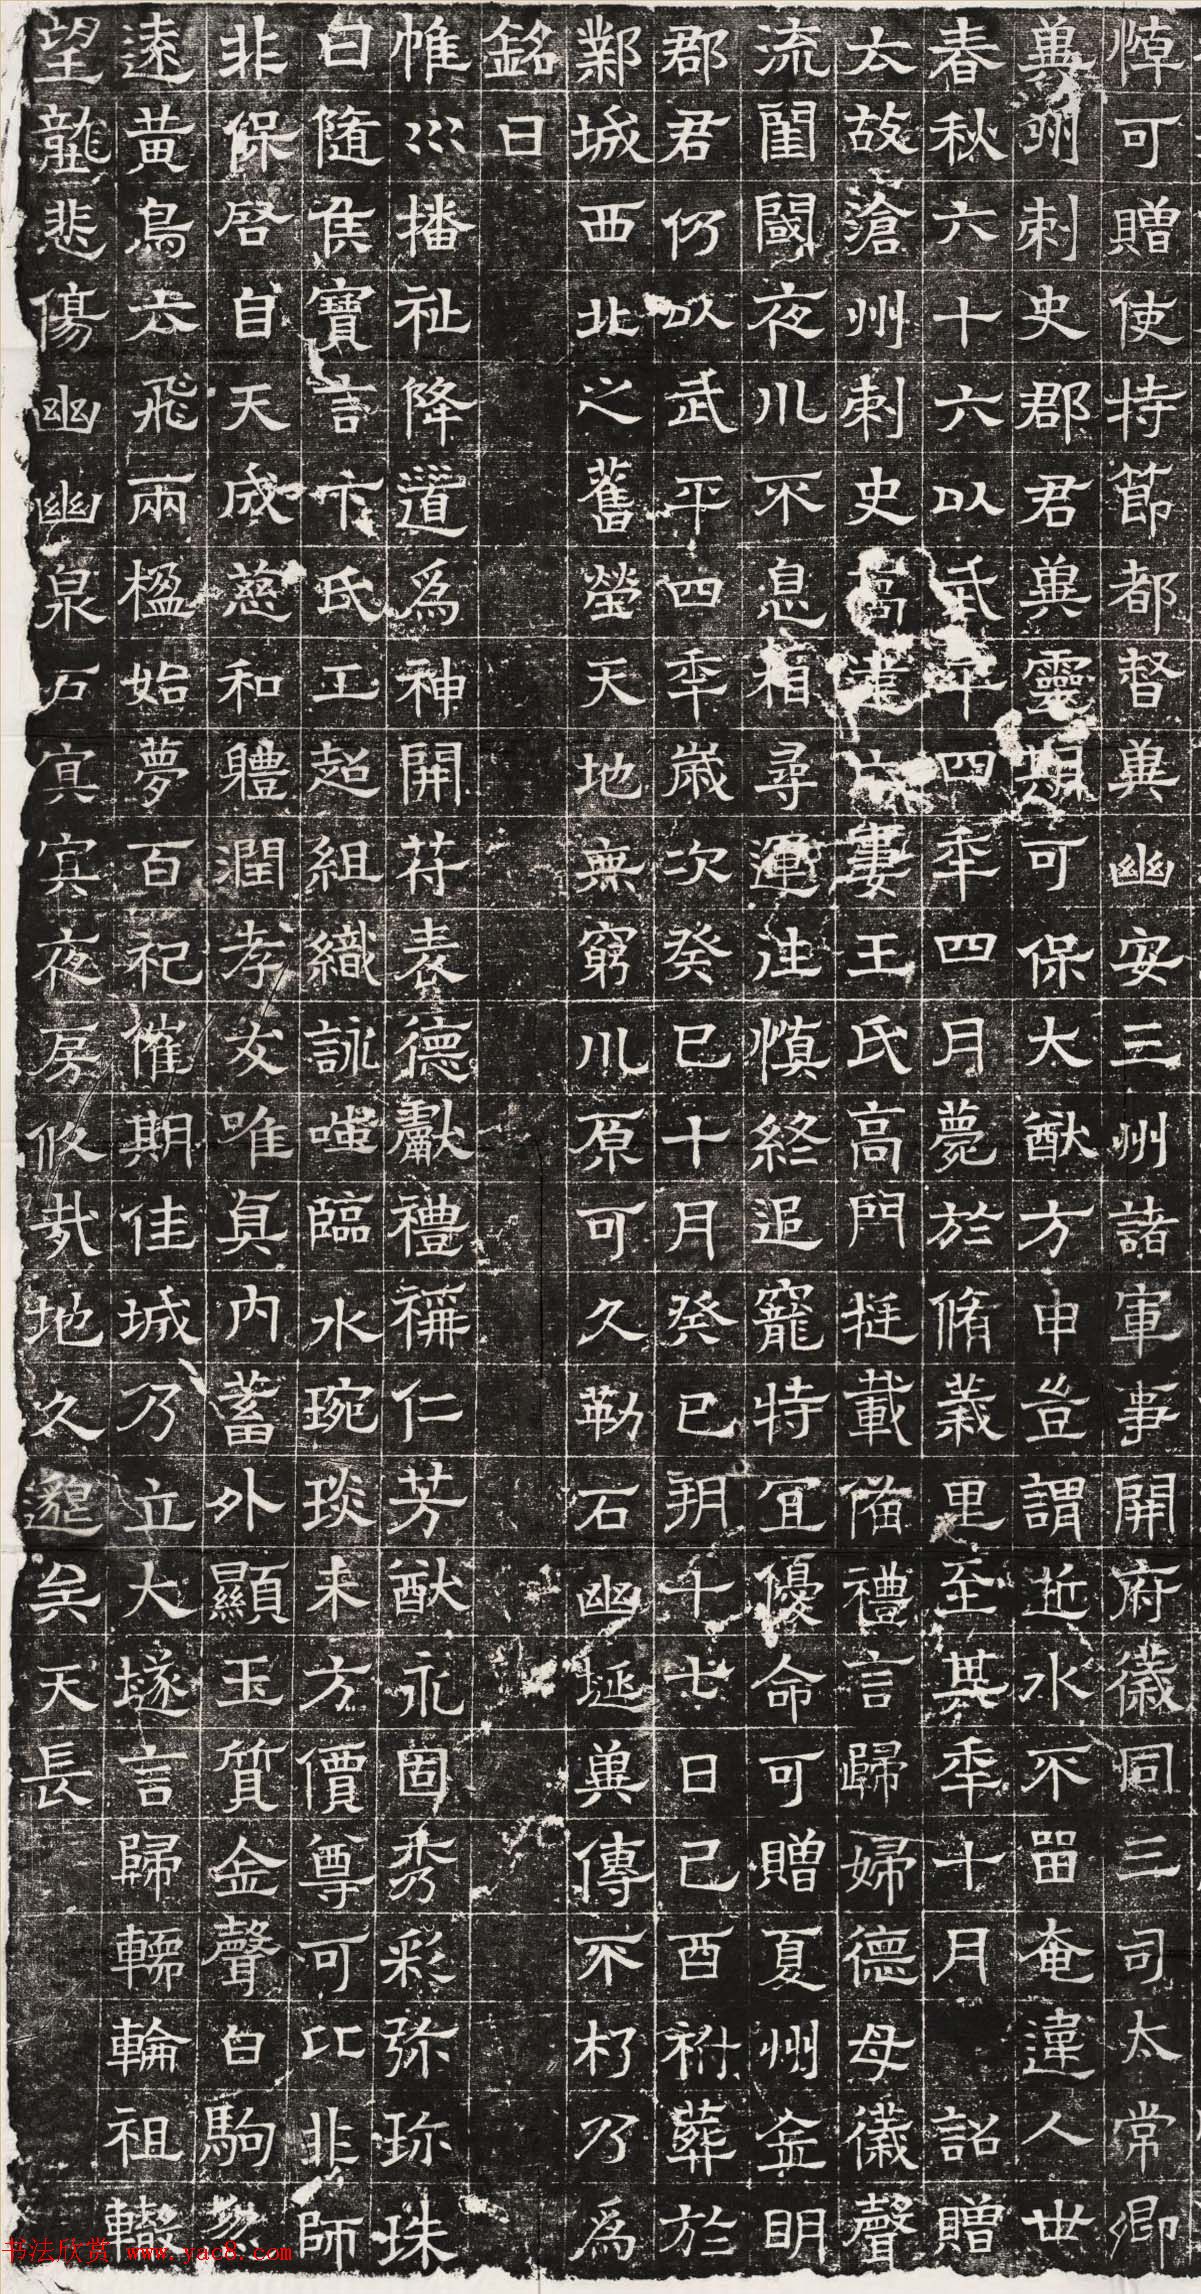 悼可贈使持節都督冀幽安三州諸軍事開府儀同三司太常卿
冀州刺史郡君冀靈期可保大猷方申豈謂近水不留奄違人世
春秋六十六以武平四年四月薨於脩義里至其年十月詔贈
太故滄州刺史高妻王氏高門挺載備禮言歸婦德母儀聲
流閨閫夜川不息相尋運往慎終追寵特宜優命可贈夏州金明
郡君仍以武平四年歲次癸巳十月癸巳朔十七日己酉祔葬於
鄴城西北之舊塋天地無窮川原可久勒石幽埏冀傳不朽乃為
銘曰
惟川播祉降道為神開苻表德獻禮稱仁芳猷永固秀彩弥珎珠
白隨侯寶言卞氏工超組織詠嗤臨水琬琰未方價尊可比非師
非保啓自天成慈和體潤孝友唯真内蓄外顯玉質金聲白駒
遠黄鳥去飛兩楹始夢百祀催期佳城乃立大墜言歸轜輪祖轍
望蘢悲傷幽幽泉石寘寘夜房攸哉地久邈矣天長
書法欣赏 www.yac8.com